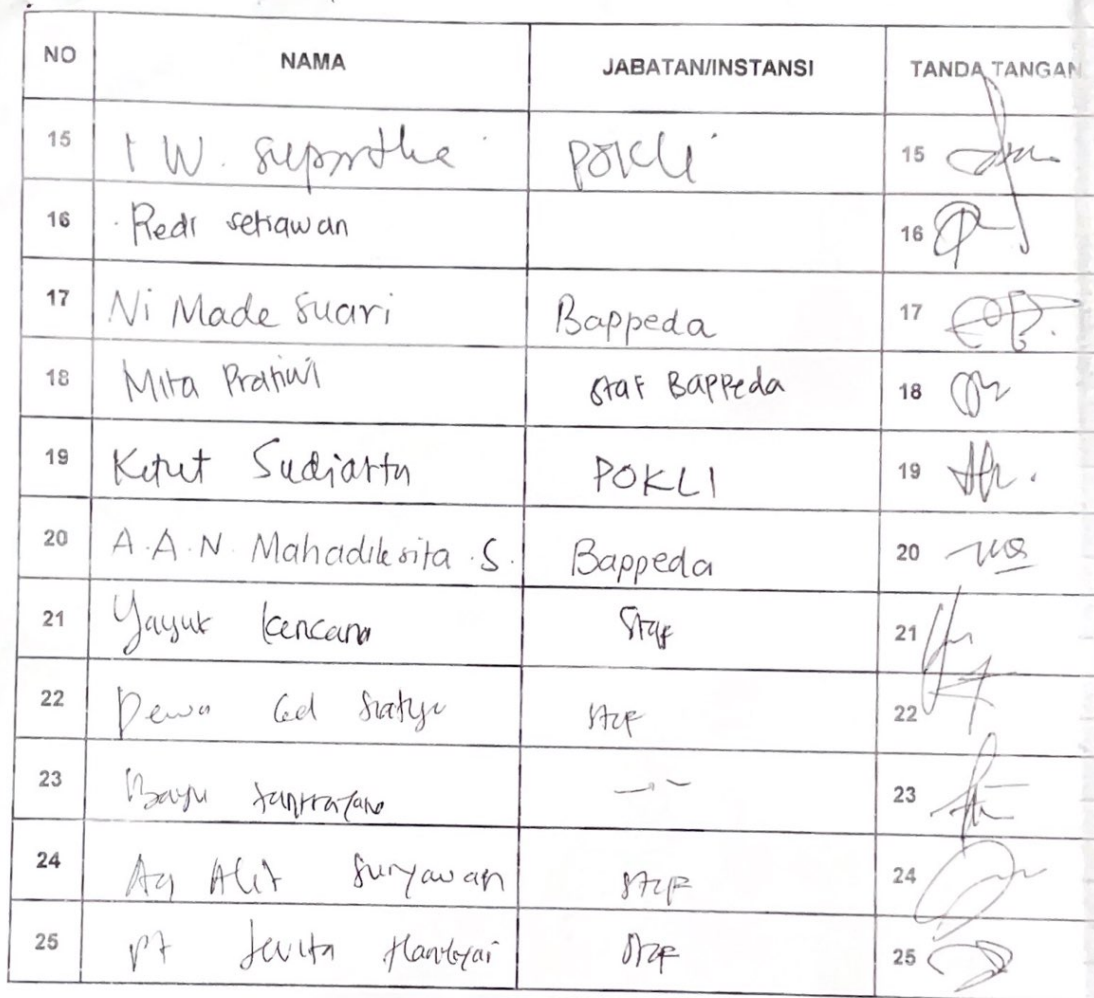 NO NAMA JABATAN/INSTANSI TANDA TANGAN
15 I W. POKLI 15
16 Redi setiawan 16
17 Ni Made Suari Bappeda 17
18 Mita Pratiwi Staf Bappeda 18
19 Ketut Sudiarta POKLI 19
20 A.A.N. Mahadiksita .S. Bappeda 20
21 Yayuk kencana Staf 21
22 Dewa Ged Staf 22
23 Bayu 23
24 Alit Suryawan Staf 24
25 Pt Staf 25